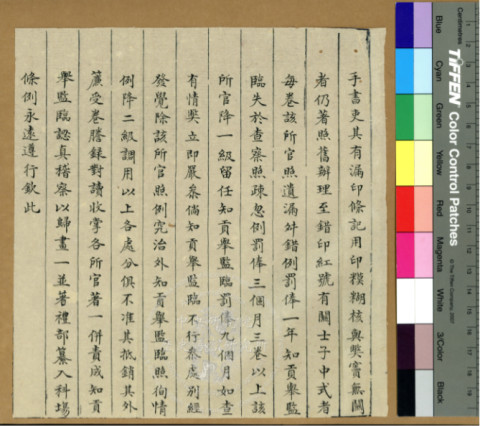 手書更其有漏印條記用印糢糊核與獘竇無關
者仍著照舊辦理至錯印紅號有關士子中式者
每卷該所官照遺漏舛錯例罰俸一年知貢舉監
臨失於查察照疎忽例罰俸三個月三卷以上該
所官降一級留任知貢舉監臨罰俸九個月如查
有情獘立即嚴叅倘知貢舉監臨不行叅處別經
發覺除該所官照例究治外知貢舉監臨照徇情
例降二級調用以上各處分俱不准其抵銷其外
簾受卷謄錄對讀收掌各所官著一併責成知貢
舉監臨認真稽察以歸畫一並著禮部纂入科塲
條例永遠遵行欽此
Centimetres
TIFFEN Color Control Patches
© The Tiffen Company
Blue
Cyan
Green
Yellow
Red
Magenta
White
3/Color
Black